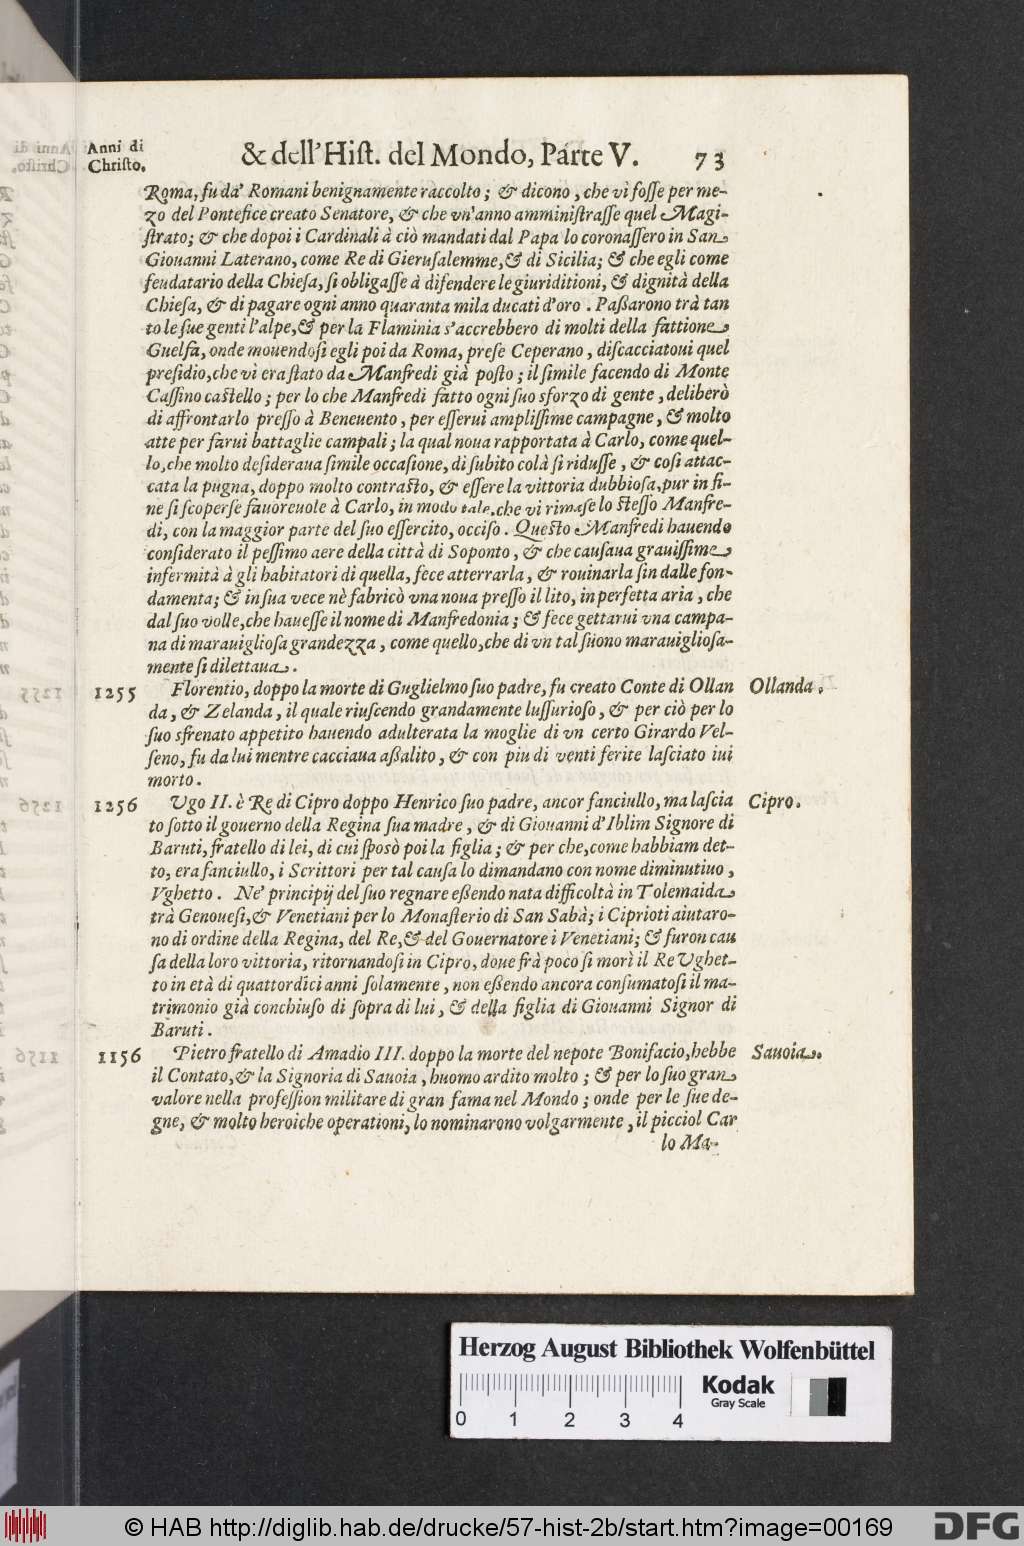 Anni di
Chriſto.
& dell'Hiſt. del Mondo, Parte V. 73
Roma, fu da' Romani benignamente raccolto; & dicono, che vi foſſe per me-
zo del Pontefice creato Senatore, & che vn'anno amminiſtraſſe quel Magi-
ſtrato; & che dopoi i Cardinali à ciò mandati dal Papa lo coronaſſero in San
Giouanni Laterano, come Re di Gieruſalemme, & di Sicilia; & che egli come
feudatario della Chieſa, ſi obligaſſe à difendere le giuriditioni, & dignità della
Chieſa, & di pagare ogni anno quaranta mila ducati d'oro. Paßarono trà tan
to le ſue genti l'alpe, & per la Flaminia s'accrebbero di molti della fattione
Guelfa, onde mouendoſi egli poi da Roma, preſe Ceperano, diſcacciatoui quel
preſidio, che vi era ſtato da Manfredi già poſto; il ſimile facendo di Monte
Caſſino caſtello; per lo che Manfredi fatto ogni ſuo sforzo di gente, deliberò
di affrontarlo preſſo à Beneuento, per eſſerui ampliſſime campagne, & molto
atte per farui battaglie campali; la qual noua rapportata à Carlo, come quel-
lo, che molto deſideraua ſimile occaſione, di ſubito colà ſi riduſſe, & coſi attac-
cata la pugna, doppo molto contraſto, & eſſere la vittoria dubbioſa, pur in fi-
ne ſi ſcoperſe fauoreuole à Carlo, in modo tale, che vi rimaſe lo ſteſſo Manfre-
di, con la maggior parte del ſuo eſſercito, occiſo. Queſto Manfredi hauendo
conſiderato il peſſimo aere della città di Soponto, & che cauſaua grauiſſime
infermità à gli habitatori di quella, fece atterrarla, & rouinarla ſin dalle fon-
damenta; & in ſua vece nè fabricò vna noua preſſo il lito, in perfetta aria, che
dal ſuo volle, che haueſſe il nome di Manfredonia; & fece gettarui vna campa-
na di marauiglioſa grandezza, come quello, che di vn tal ſuono marauiglioſa-
mente ſi dilettaua.
1255 Florentio, doppo la morte di Guglielmo ſuo padre, fu creato Conte di Ollan Ollanda.
da, & Zelanda, il quale riuſcendo grandamente luſſurioſo, & per ciò per lo
ſuo sfrenato appetito hauendo adulterata la moglie di vn certo Girardo Vel-
ſeno, fu da lui mentre cacciaua aßalito, & con piu di venti ferite laſciato iui
morto.
1256 Vgo II. è Re di Cipro doppo Henrico ſuo padre, ancor fanciullo, ma laſcia Cipro.
to ſotto il gouerno della Regina ſua madre, & di Giouanni d'Iblim Signore di
Baruti, fratello di lei, di cui ſposò poi la figlia; & per che, come habbiam det-
to, era fanciullo, i Scrittori per tal cauſa lo dimandano con nome diminutiuo,
Vghetto. Ne' principij del ſuo regnare eßendo nata difficoltà in Tolemaida
trà Genoueſi, & Venetiani per lo Monaſterio di San Sabà; i Ciprioti aiutaro-
no di ordine della Regina, del Re, & del Gouernatore i Venetiani; & furon cau
ſa della loro vittoria, ritornandoſi in Cipro, doue frà poco ſi morì il Re Vghet-
to in età di quattordici anni ſolamente, non eßendo ancora conſumatoſi il ma-
trimonio già conchiuſo di ſopra di lui, & della figlia di Giouanni Signor di
Baruti.
1156 Pietro fratello di Amadio III. doppo la morte del nepote Bonifacio, hebbe Sauoia.
il Contato, & la Signoria di Sauoia, huomo ardito molto; & per lo ſuo gran
valore nella profeſſion militare di gran fama nel Mondo; onde per le ſue de-
gne, & molto heroiche operationi, lo nominarono volgarmente, il picciol Car
lo Ma-
Herzog August Bibliothek Wolfenbüttel
Kodak
Gray Scale
0 1 2 3 4
© HAB http://diglib.hab.de/drucke/57-hist-2b/start.htm?image=00169
DFG